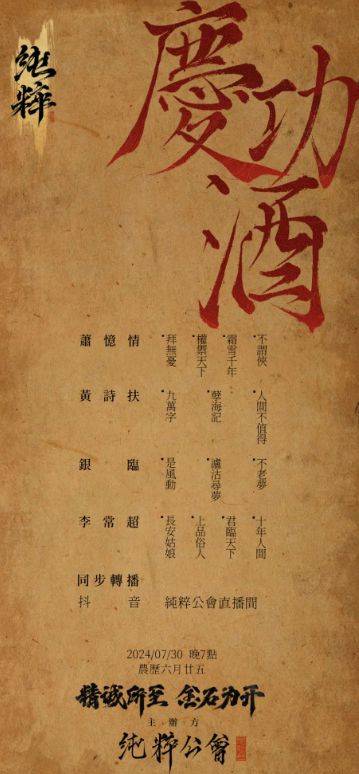 純粹
慶功酒
蕭憶情
拜無憂
權禦天下
霜雪千年
不謂俠
黃詩扶
九萬字
孽海記
人間不值得
銀臨
是風動
瀘沽尋夢
不老夢
李常超
長安姑娘
上品俗人
君臨天下
十年人間
同步轉播
抖音 純粹公會直播間
2024/07/30 晚7點
農歷六月廿五
精诚所至 金石为开
主辦方
純粹公會